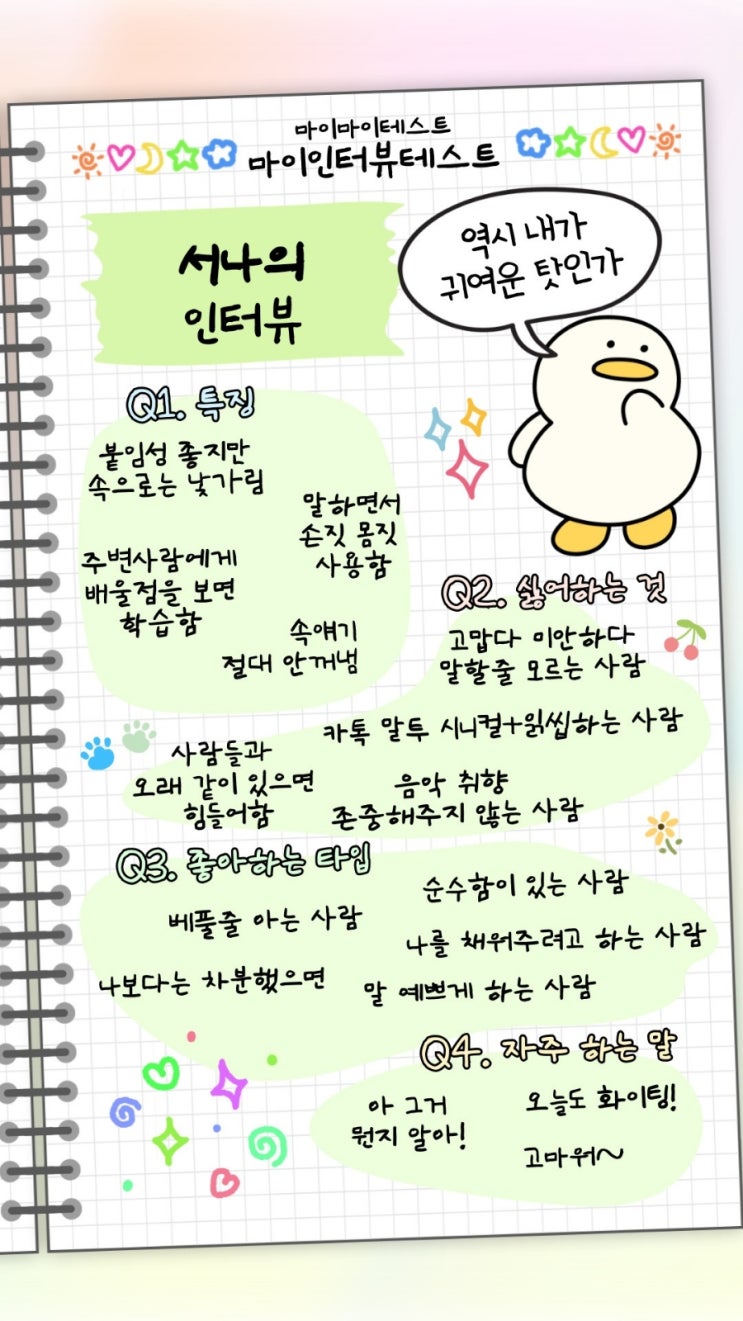 마이마이테스트
마이인터뷰테스트
서나의
인터뷰
역시 내가
귀여운 탓인가
Q1. 특징
붙임성 좋지만
속으로는 낯가림
말하면서
손짓 몸짓
사용함
주변사람에게
배울점을 보면
학습함
속얘기
절대 안꺼냄
사람들과
오래 같이 있으면
힘들어함
Q2. 싫어하는 것
고맙다 미안하다
말할줄 모르는 사람
카톡 말투 시니컬+읽씹하는 사람
음악 취향
존중해주지 않는 사람
Q3. 좋아하는 타입
순수함이 있는 사람
베풀줄 아는 사람
나를 채워주려고 하는 사람
나보다는 차분했으면
말 예쁘게 하는 사람
Q4. 자주 하는 말
아 그거
뭔지 알아!
오늘도 화이팅!
고마워~